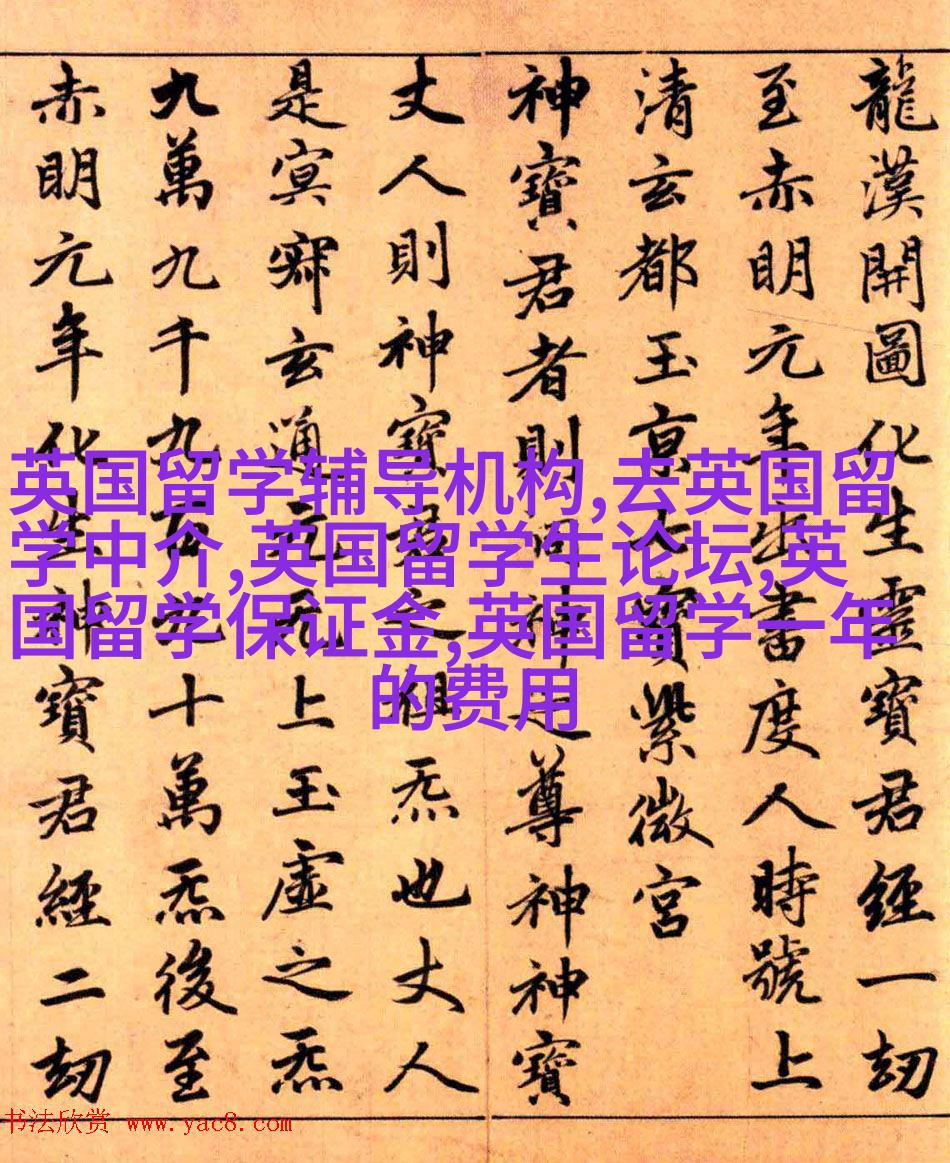 龍漢開圖化生靈寶君經一劫
至赤明元年出書度人時號上
清玄都玉京七寶紫微宮
神寶君者則洞神之尊神神寶
丈人則神寶君之祖炁也丈人
是冥寂玄通元无上玉虛之炁
九萬九千九百九十萬炁後至
赤明元年化生神寶君經二劫
英国留学辅导机构,去英国留
学中介,英国留学生论坛,英
国留学保证金,英国留学一年
的费用
书法欣赏 www.yac8.com